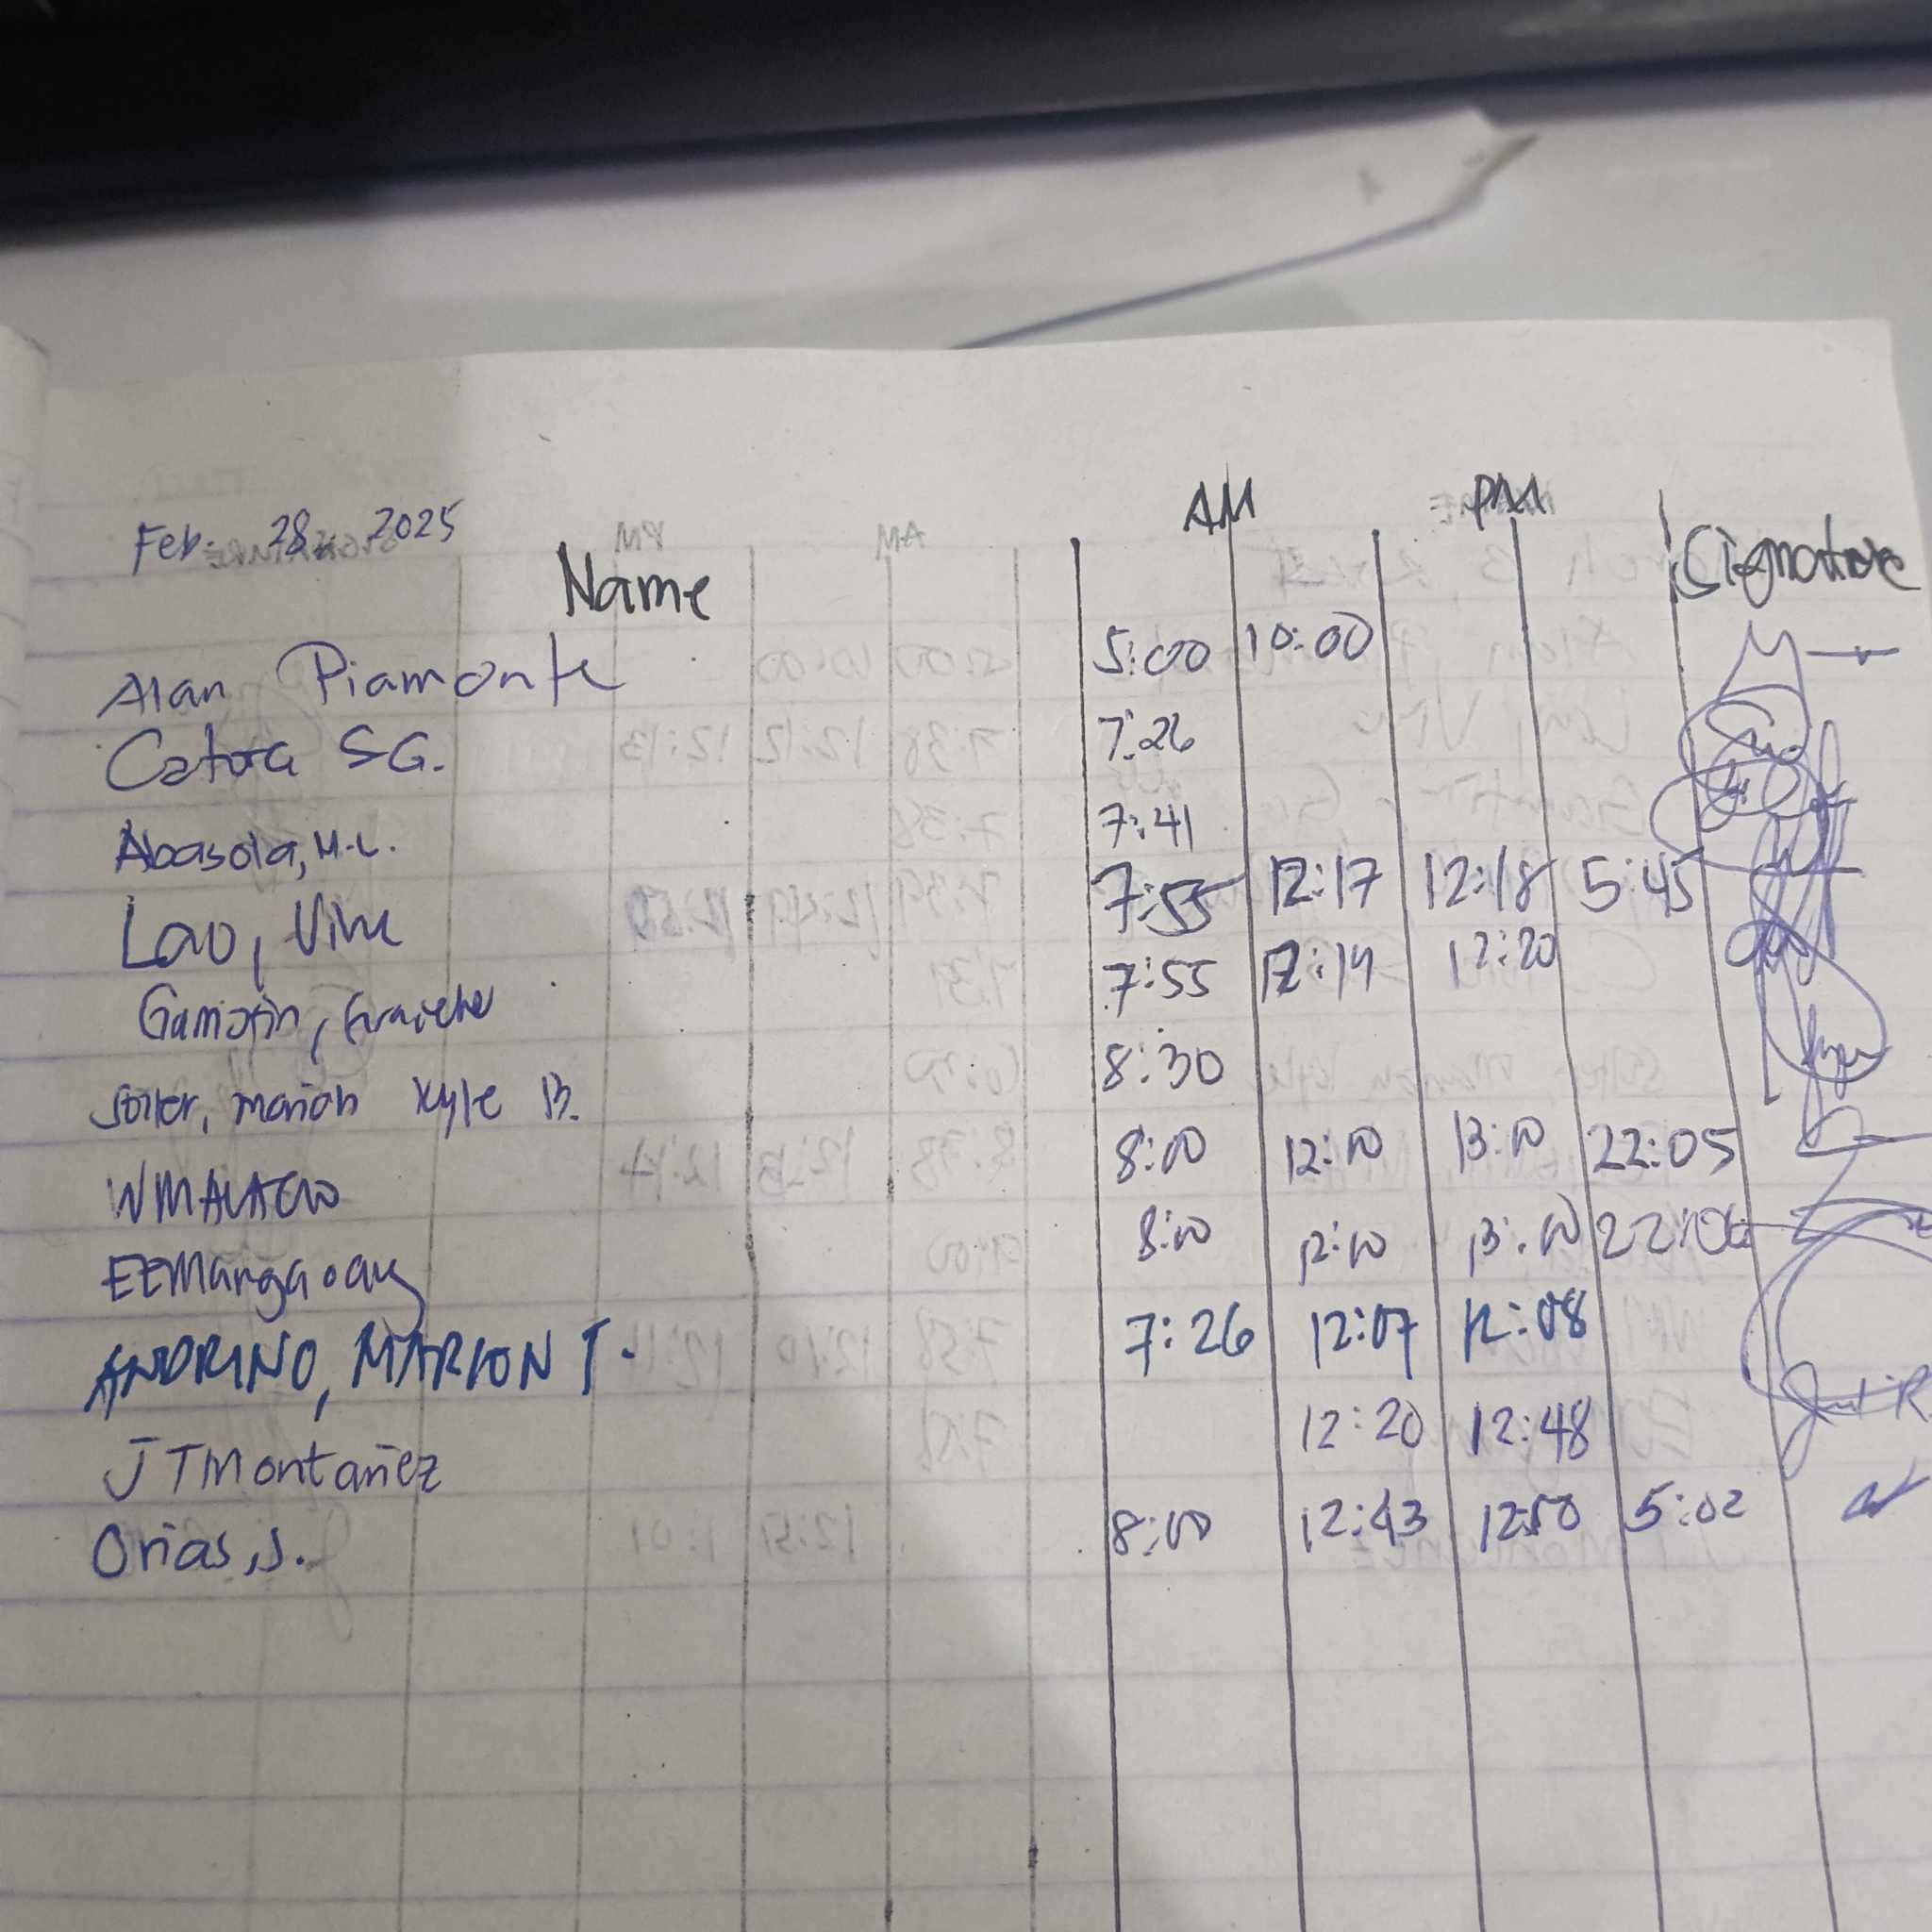 Feb. 28, 2025
Name AM PM Signature
Alan Piamonte 5:00 10:00
Catora SG. 7:26
Abasola, M.L. 7:41
Lao, Vine 7:55 12:17 12:18 5:45
Gamotin, 7:55 12:19 12:20
Soller, Mariah Kyle B. 8:30
8:00 12:00 13:00 22:05
EEMangaoang 8:00 12:00 13:00 22:06
ANDRINO, MARION T. 7:26 12:07 12:08
JTMontañez 12:20 12:48
Orias, J. 8:00 12:43 12:50 5:02